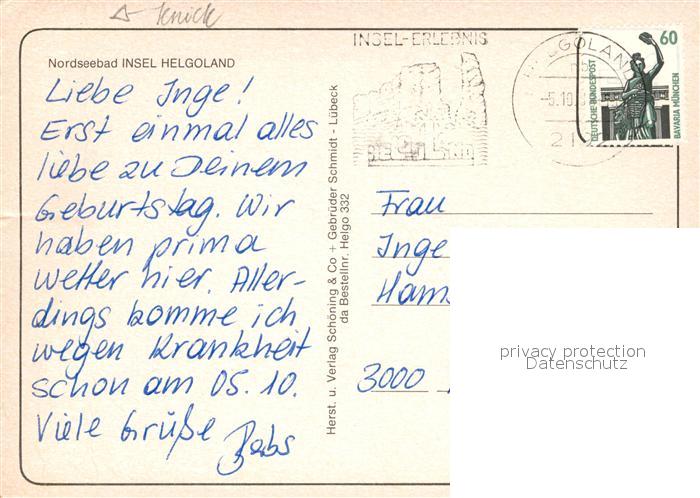 Knick
Nordseebad INSEL HELGOLAND
Liebe Inge!
Erst einmal alles
liebe zu Deinem
Geburtstag. Wir
haben prima
Wetter hier. Aller-
dings komme ich
wegen Krankheit
schon am 05.10.
Viele Grüße Babs
Herst. u. Verlag Schöning & Co + Gebrüder Schmidt - Lübeck
da Bestellnr. Helgo 332
INSEL-ERLEBNIS
HELGOLAND
-5.10.
60
DEUTSCHE BUNDESPOST
BAVARIA MÜNCHEN
Frau
Inge
3000
privacy protection
Datenschutz